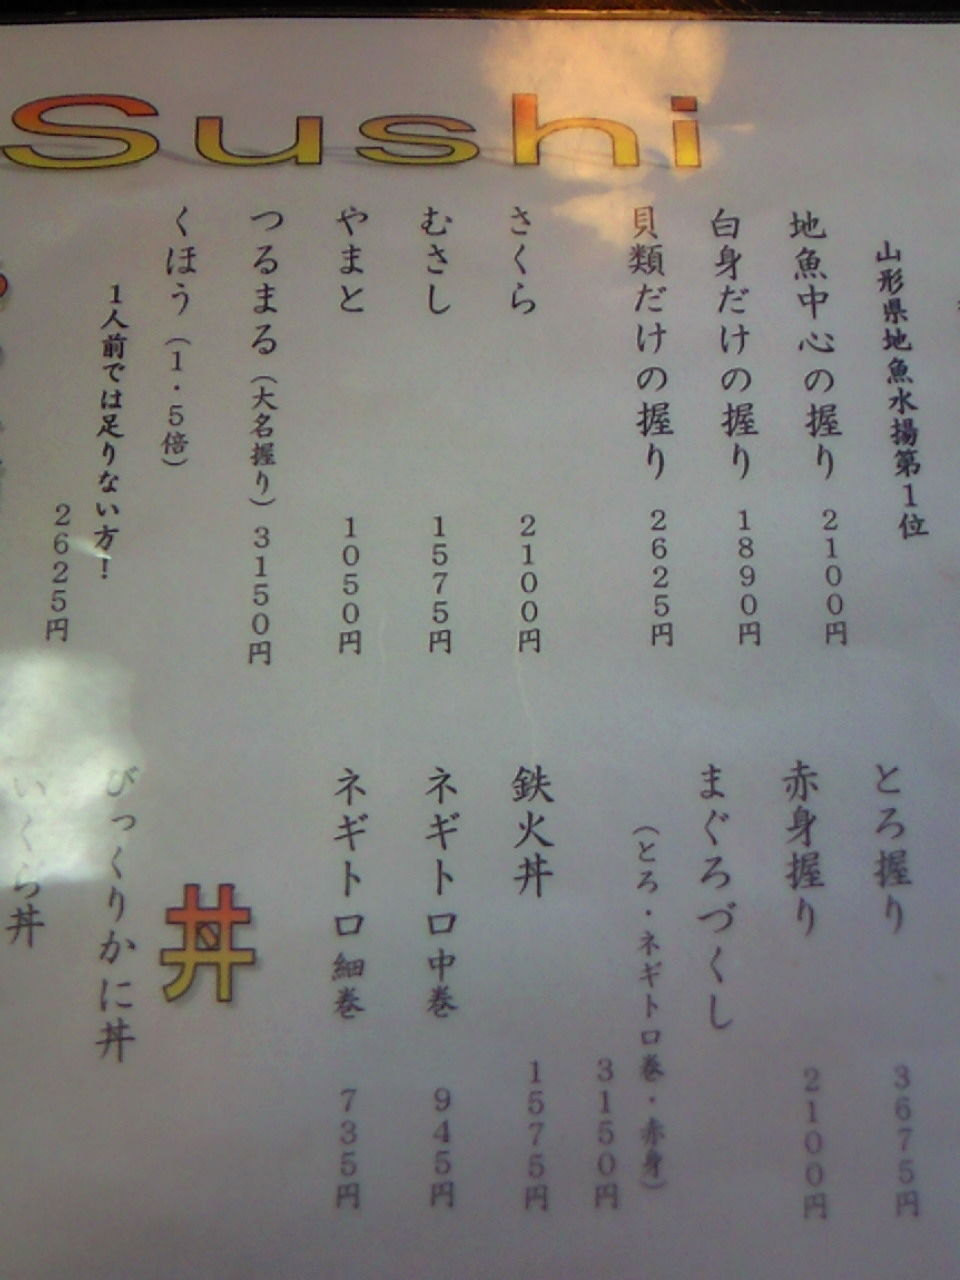 Sushi
山形県地魚水揚第1位
地魚中心の握り 2100円
白身だけの握り 1890円
貝類だけの握り 2625円
さくら 2100円
むさし 1575円
やまと 1050円
つるまる(大名握り) 3150円
くほう(1・5倍)
1人前では足りない方!
2625円
とろ握り 3675円
赤身握り 2100円
まぐろづくし
(とろ・ネギトロ巻・赤身)
3150円
鉄火丼 1575円
ネギトロ中巻 945円
ネギトロ細巻 735円
丼
びっくりかに丼
いくら丼